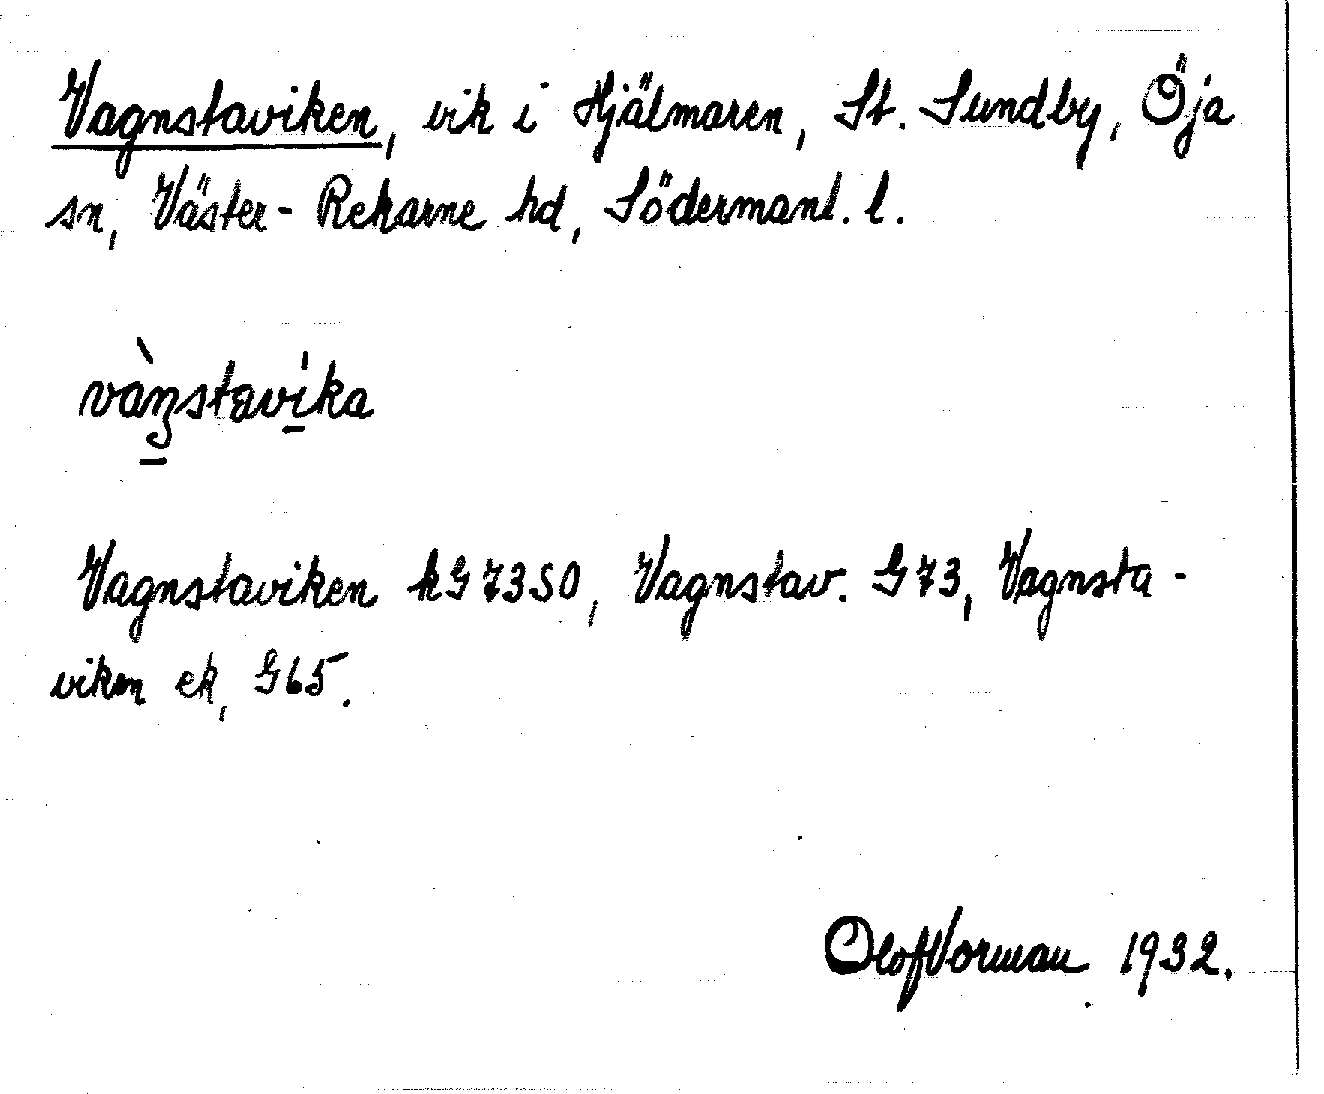 Vagnstaviken, vik i Hjälmaren, St. Sundby, Öja
sn, Väster-Rekarne hd, Södermanl. l.
vàŋstavíka
Vagnstaviken kG7350, Vagnstav. G73, Vagnsta-
viken ek, G65.
Olof Vorman 1932.